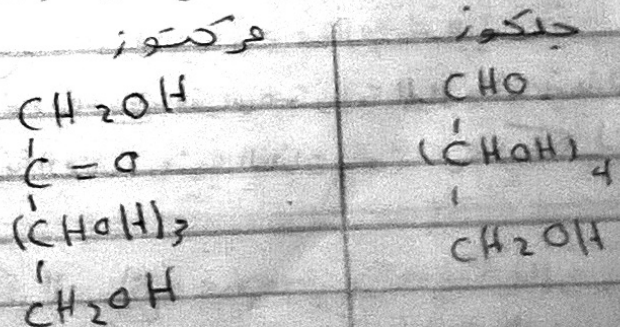 جلكوز
CHO
(CHOH)4
CH2OH
فركتوز
CH2OH
C=O
(CHOH)3
CH2OH